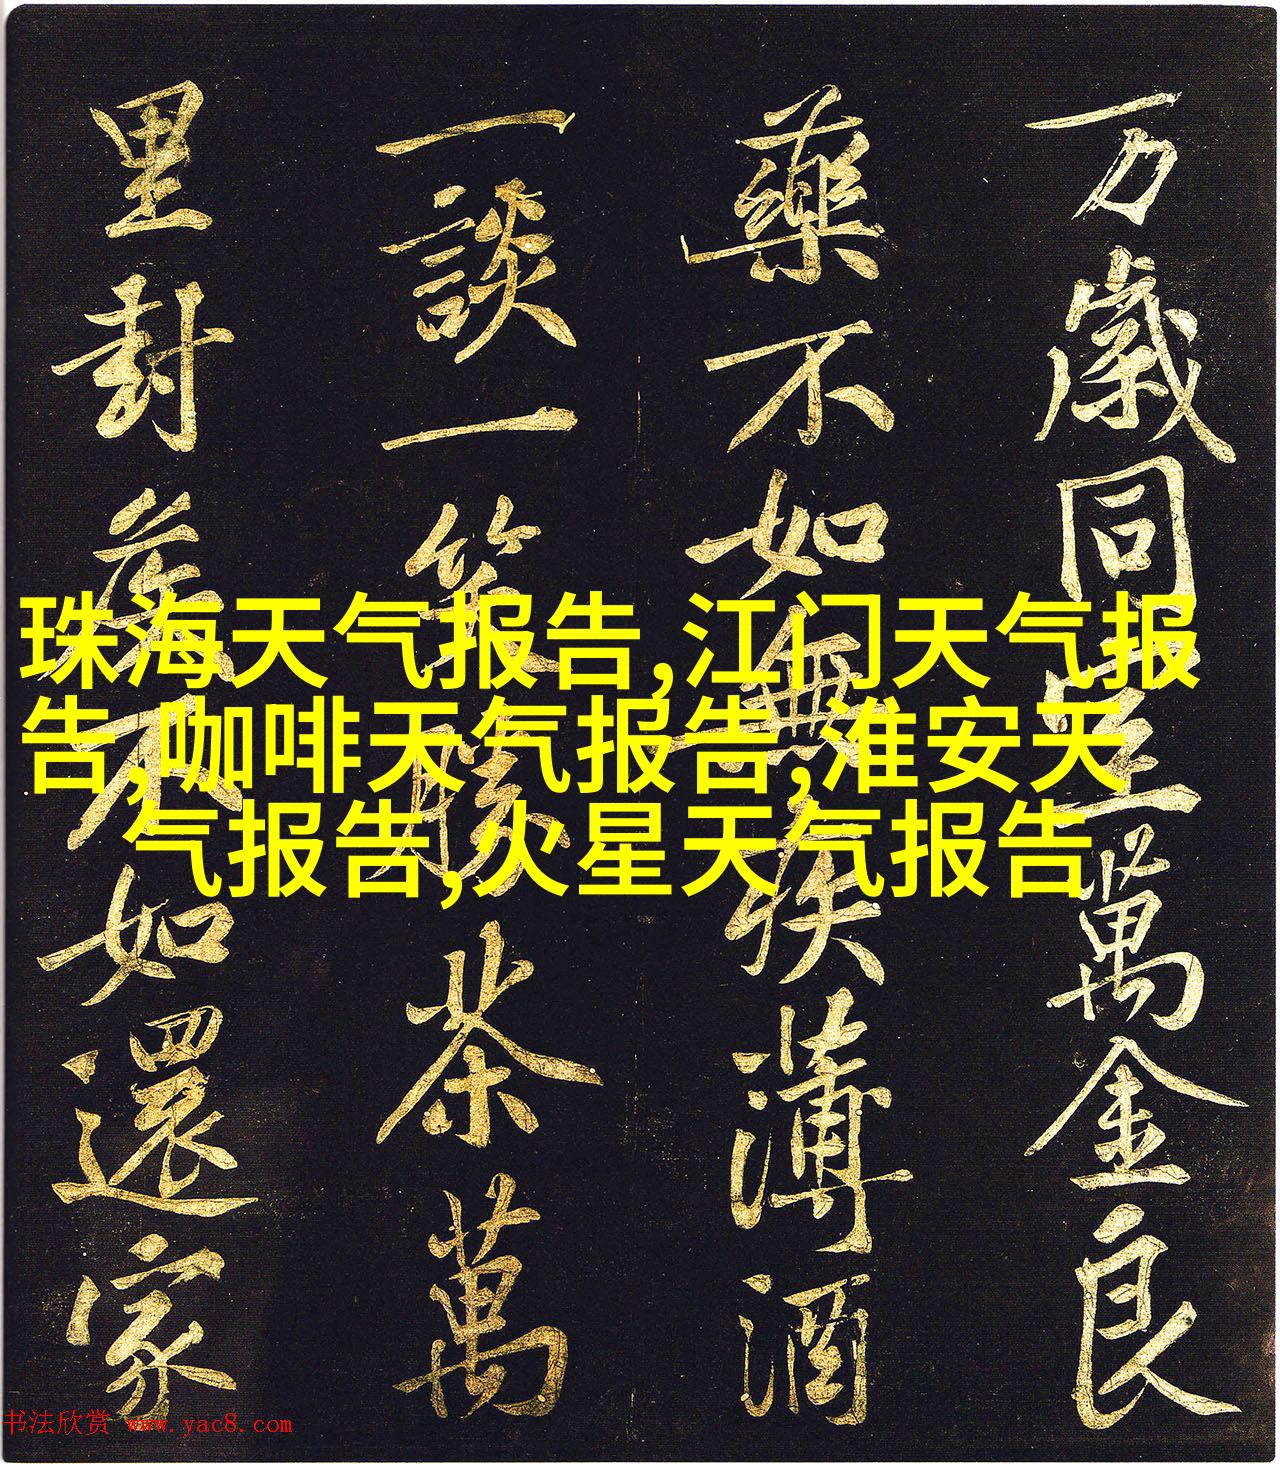 万歲同室萬金良
藥不如無疾薄酒
一談一笑勝茶萬
里封侯不如還家
珠海天气报告,江门天气报
告,咖啡天气报告,淮安天
气报告,火星天气报告
书法欣赏 www.yac8.com